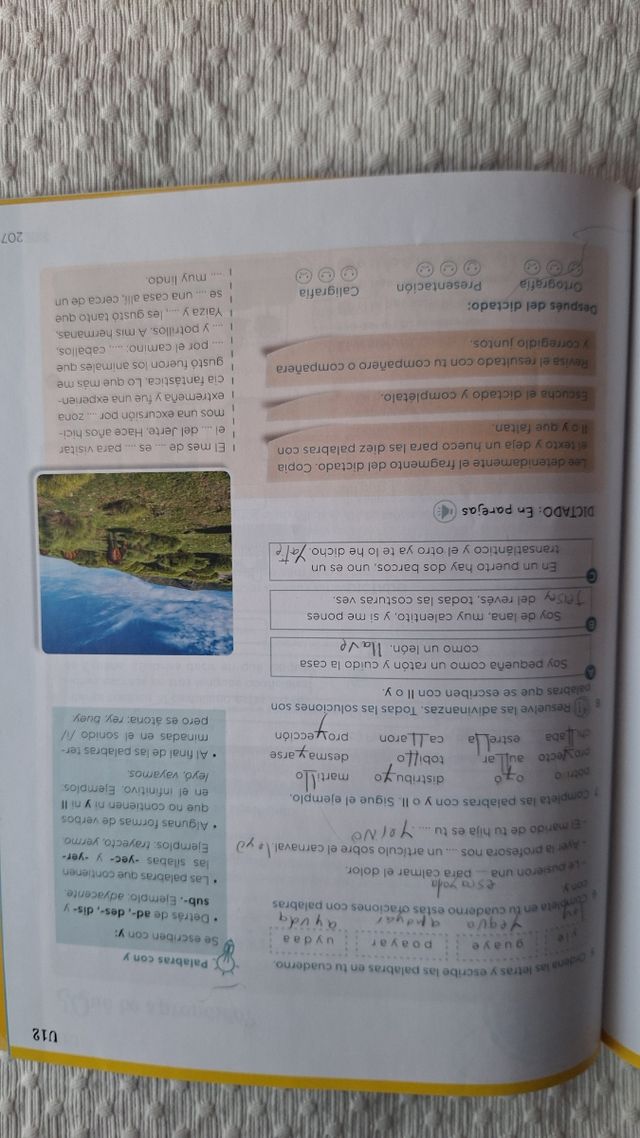 U12
5 Ordena las letras y escribe las palabras en tu cuaderno.
yle guaye poayar uydaa
ley yegua apoyar ayuda
6 Completa en tu cuaderno estas oraciones con palabras
con y.
- Le pusieron una ... para calmar el dolor. escayola
- Ayer la profesora nos .... un artículo sobre el carnaval. leyó
- El marido de tu hija es tu .... yerno
7 Completa las palabras con y o ll. Sigue el ejemplo.
oyó distribuyo martillo
proyecto aullar tobillo desmayarse
estrella callaron proyección
8 Resuelve las adivinanzas. Todas las soluciones son
palabras que se escriben con ll o y.
A Soy pequeña como un ratón y cuido la casa
como un león. llave
B Soy de lana, muy calentito, y si me pones
del revés, todas las costuras ves.
C En un puerto hay dos barcos, uno es un
transatlántico y el otro ya te lo he dicho.
Palabras con y
Se escriben con y:
• Detrás de ad-, des-, dis- y
sub-. Ejemplo: adyacente.
• Las palabras que contienen
las sílabas -yec- y -yer-.
Ejemplos: trayecto, yermo.
• Algunas formas de verbos
que no contienen ni y ni ll
en el infinitivo. Ejemplos:
leyó, vayamos.
• Al final de las palabras ter-
minadas en el sonido /i/
pero es átona: rey, buey.
DICTADO: En parejas
Lee detenidamente el fragmento del dictado. Copia
el texto y deja un hueco para las diez palabras con
ll o y que faltan.
Escucha el dictado y complétalo.
Revisa el resultado con tu compañero o compañera
y corregidlo juntos.
Después del dictado:
Ortografía Presentación Caligrafía
El mes de .... es .... para visitar
el .... del Jerte. Hace años hici-
mos una excursión por .... zona
extremeña y fue una experien-
cia fantástica. Lo que más me
gustó fueron los animales que
.... por el camino: ...., caballos,
.... y potrillos. A mis hermanas,
Yaiza y ...., les gustó tanto que
se .... una casa allí, cerca de un
.... muy lindo.
207